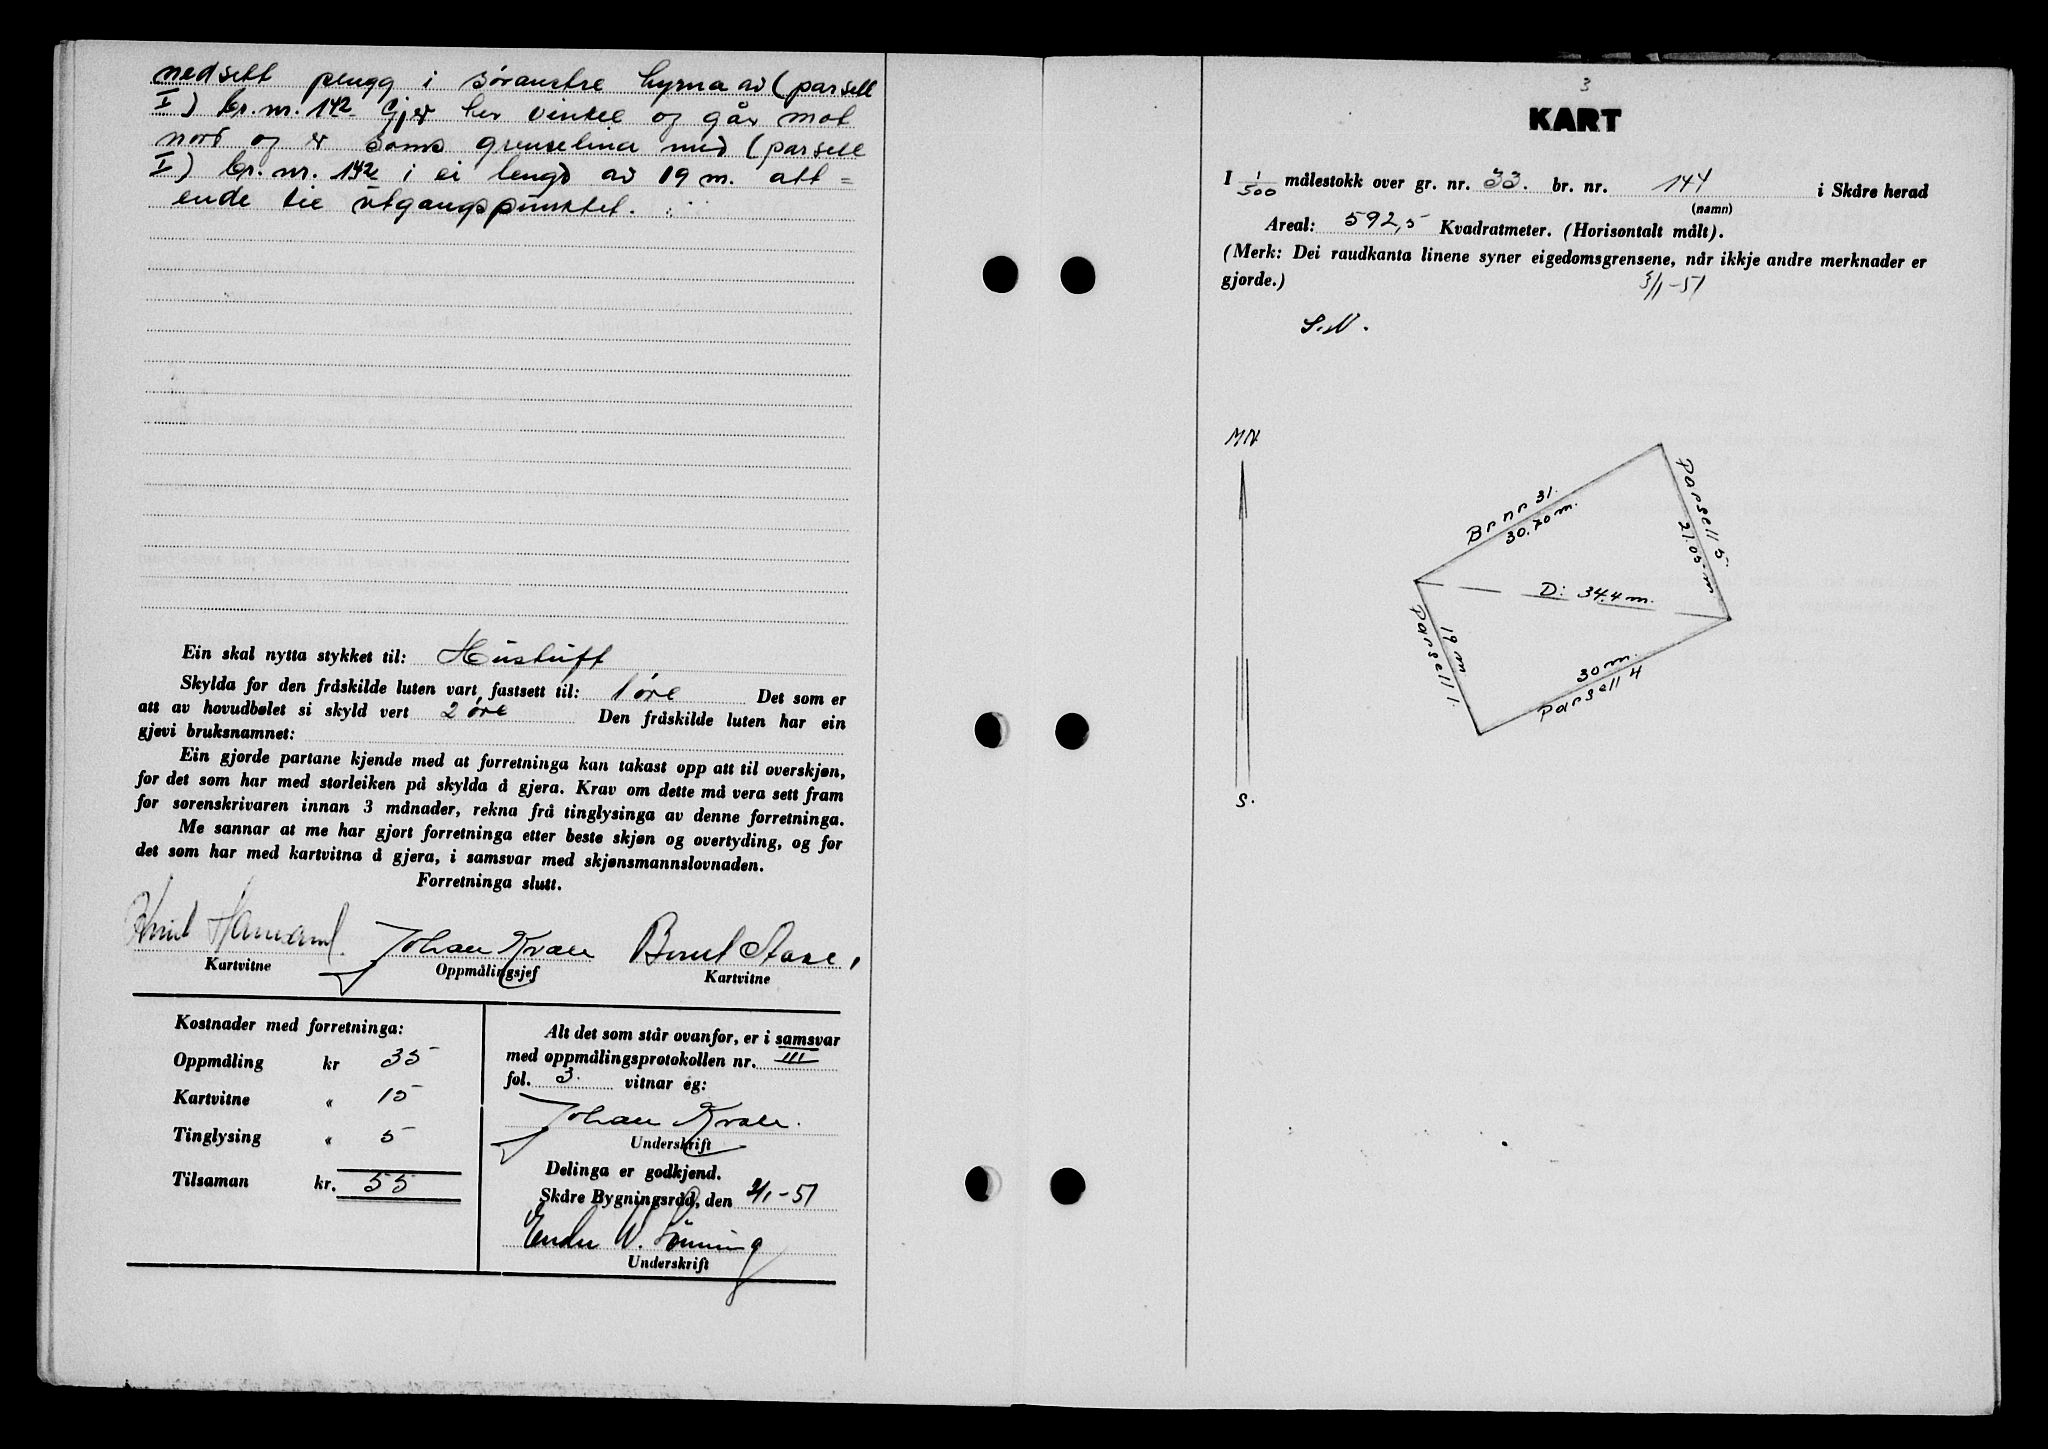 nedsett plugg i søraustre hyrna av (parsell
I) br. nr. 142. Gjer her vinkel og går mot
nord og er soms grenselina med (parsell
I) br. nr. 142 i ei lengd av 19 m. att=
ende til utgangspunktet.
Ein skal nytta stykket til: Hustuft
Skylda for den fråskilde luten vart fastsett til: 1 øre Det som er
att av hovudbølet si skyld vert 2 øre Den fråskilde luten har ein
gjevi bruksnamnet:
Ein gjorde partane kjende med at forretninga kan takast opp att til overskjøn,
for det som har med storleiken på skylda å gjera. Krav om dette må vera sett fram
for sorenskrivaren innan 3 månader, rekna frå tinglysinga av denne forretninga.
Me sannar at me har gjort forretninga etter beste skjøn og overtyding, og for
det som har med kartvitna å gjera, i samsvar med skjønsmannslovnaden.
Forretninga slutt.
Johan Kvale
Kartvitne Oppmålingsjef Kartvitne
Kostnader med forretninga:
Oppmåling kr 35
Kartvitne " 15
Tinglysing " 5
Tilsaman kr. 55
Alt det som står ovanfor, er i samsvar
med oppmålingsprotokollen nr. III
fol. 3. vitnar eg:
Johan Kvale.
Underskrift
Delinga er godkjend.
Skåre Bygningsråd, den 3/1-51
Endre W. Lønning
Underskrift
3
KART
I 1/500 målestokk over gr. nr. 33. br. nr. 144 i Skåre herad
(namn)
Areal: 592,5 Kvadratmeter. (Horisontalt målt).
(Merk: Dei raudkanta linene syner eigedomsgrensene, når ikkje andre merknader er
gjorde.)
3/1-51
S.N.
MN
Br nr 31.
30.70 m.
Parsell 5
21.05 m
D: 34.4 m.
19 m
Parsell 1.
30 m.
Parsell 4
S.